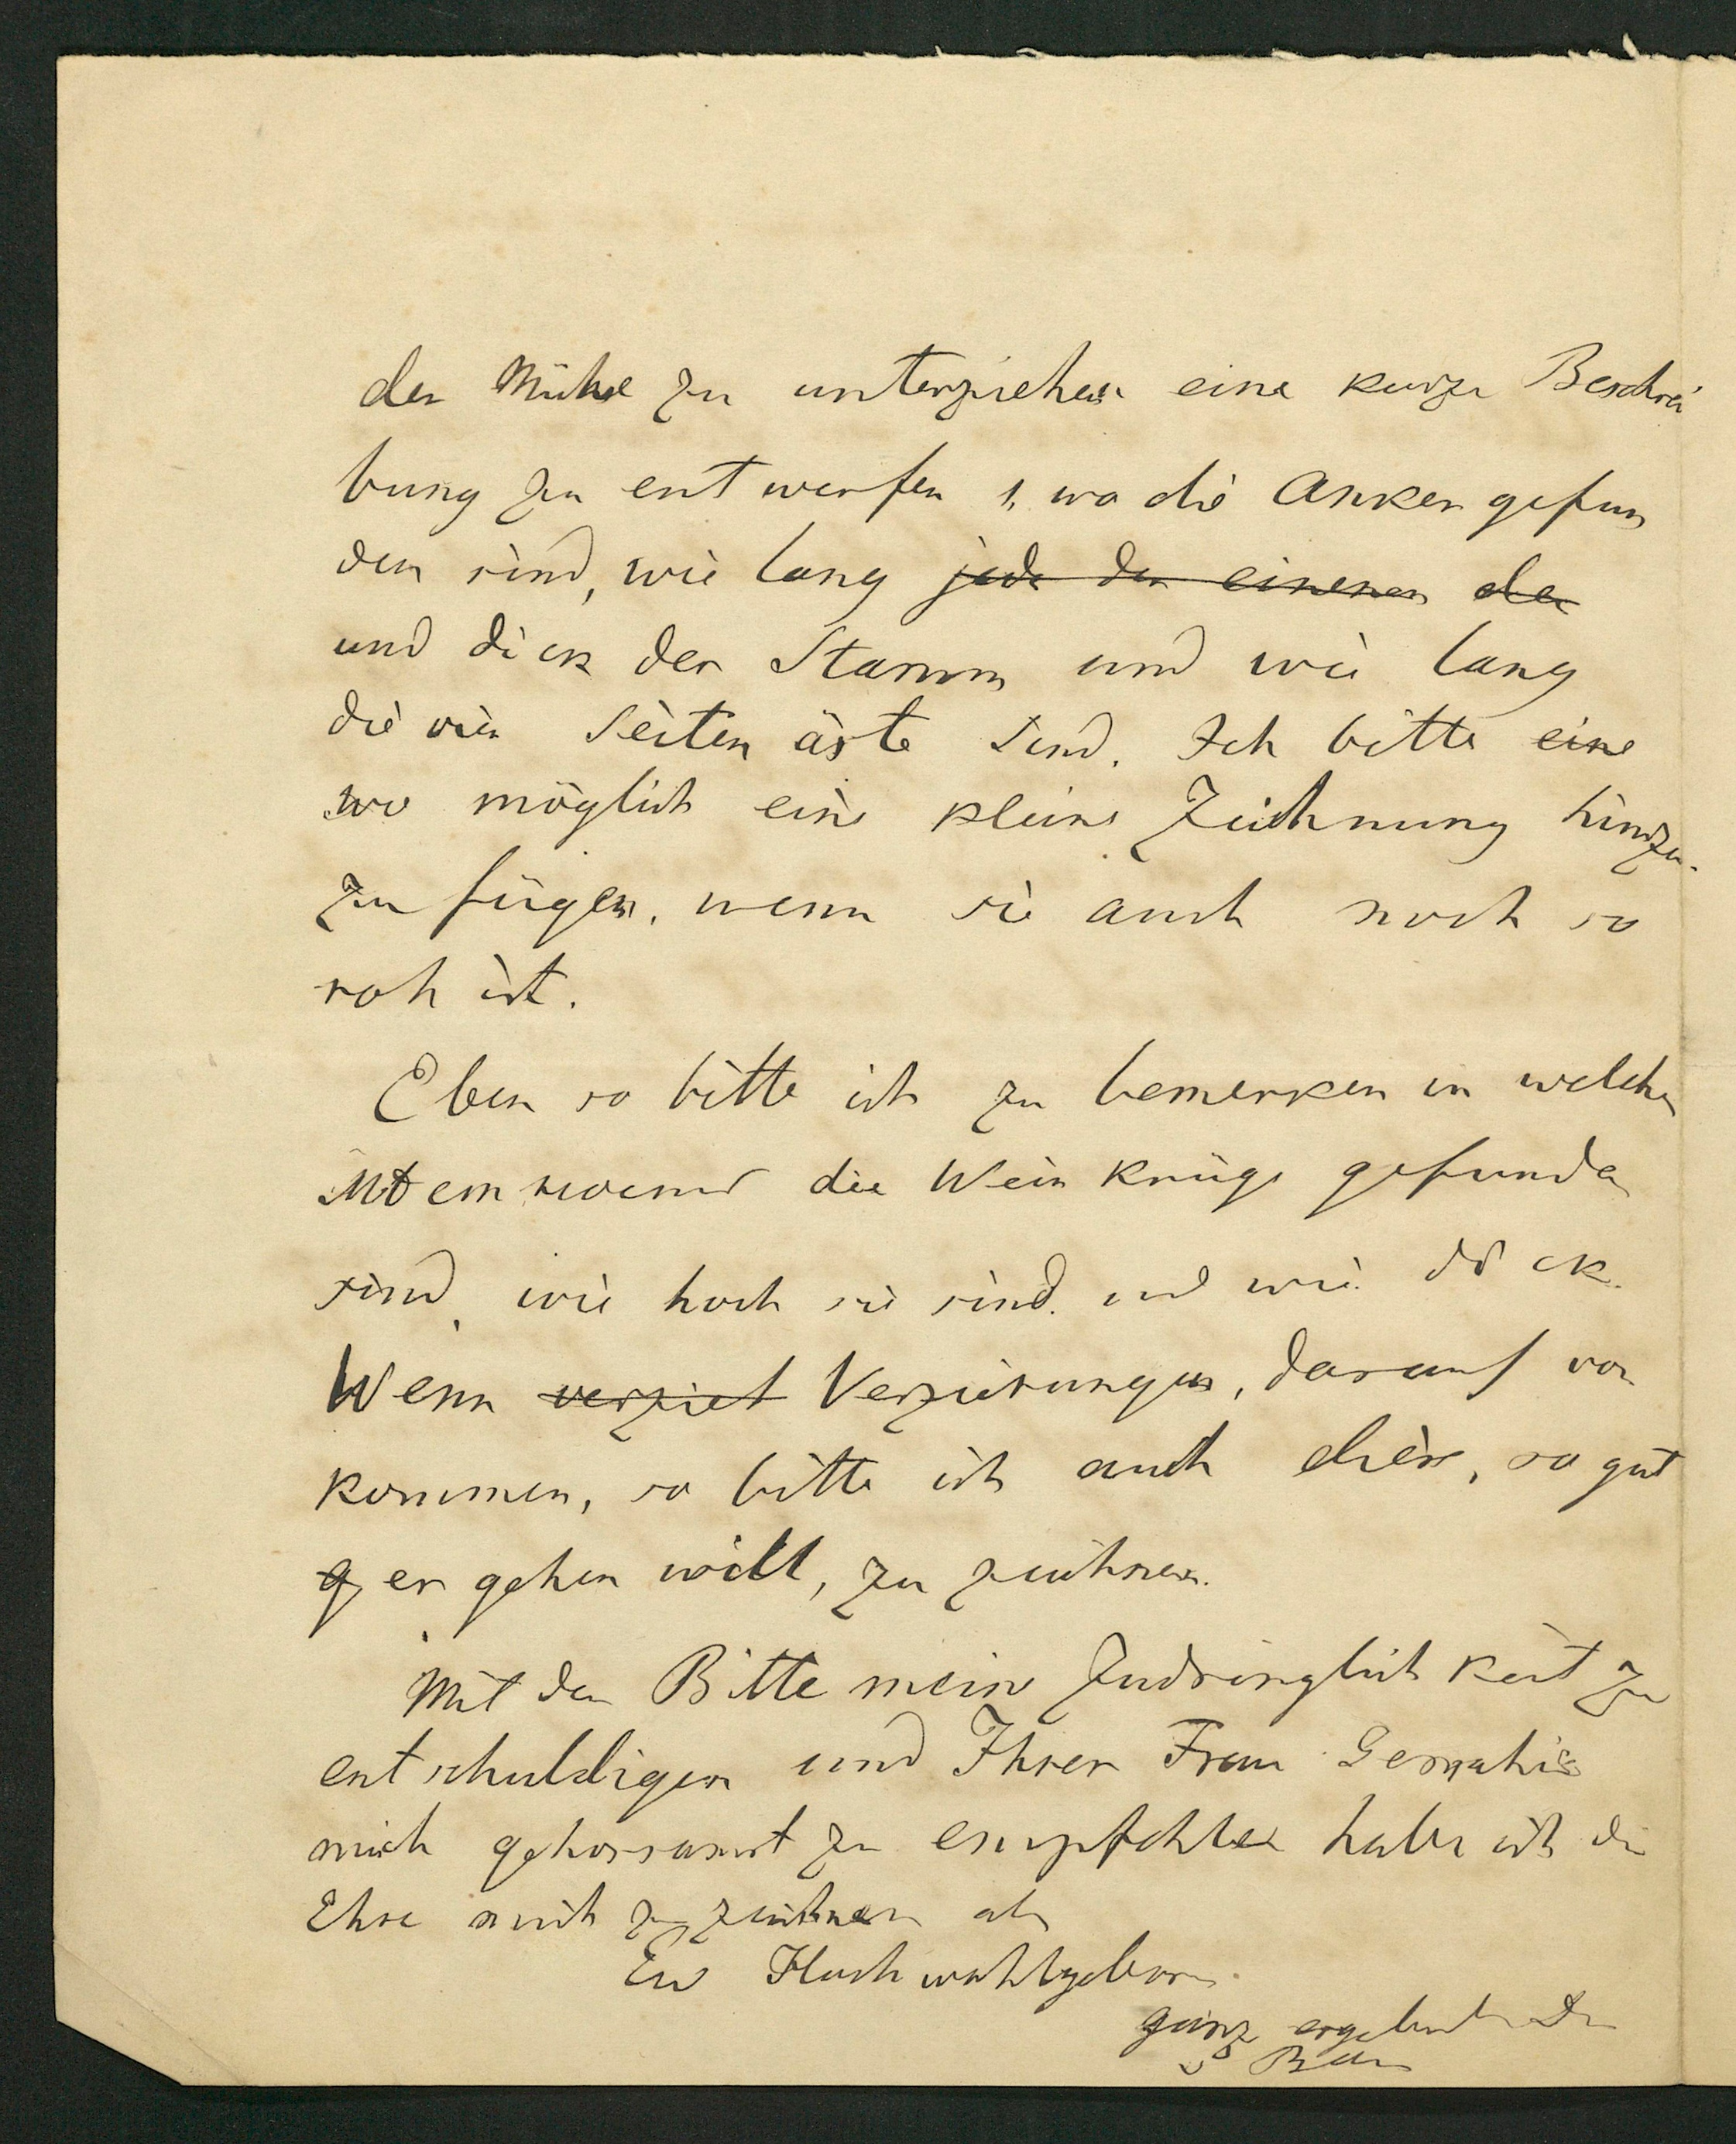 der Mühe zu unterziehen eine kurze Beschrei
bung zu entwerfen 1, wo die Anker gefun
den sind, wie lang jede der einenen der
und dick der Stamm und wie lang
die vier Seiten äste sind. Ich bitte eine
wo möglich eine kleine Zeichnung hinzu-
zu fügen, wenn sie auch noch so
roh ist.
Eben so bitte ich zu bemerken in welcher
die Wein Krüge gefunden
sind, wie hoch sie sind und wie dick.
Wenn verziert Verzierungen, darauf vor
kommen, so bitte ich auch diese, so gut
g er gehen will, zu zeichnen.
Mit der Bitte meine Zudringlichkeit zu
entschuldigen und Ihrer Frau Gemahlin
mich gehorsamst zu empfehlen habe ich die
Ehre mich zu zeichnen als
Ew Hochwohlgeboren
ganz ergebenster Dr
v Baer